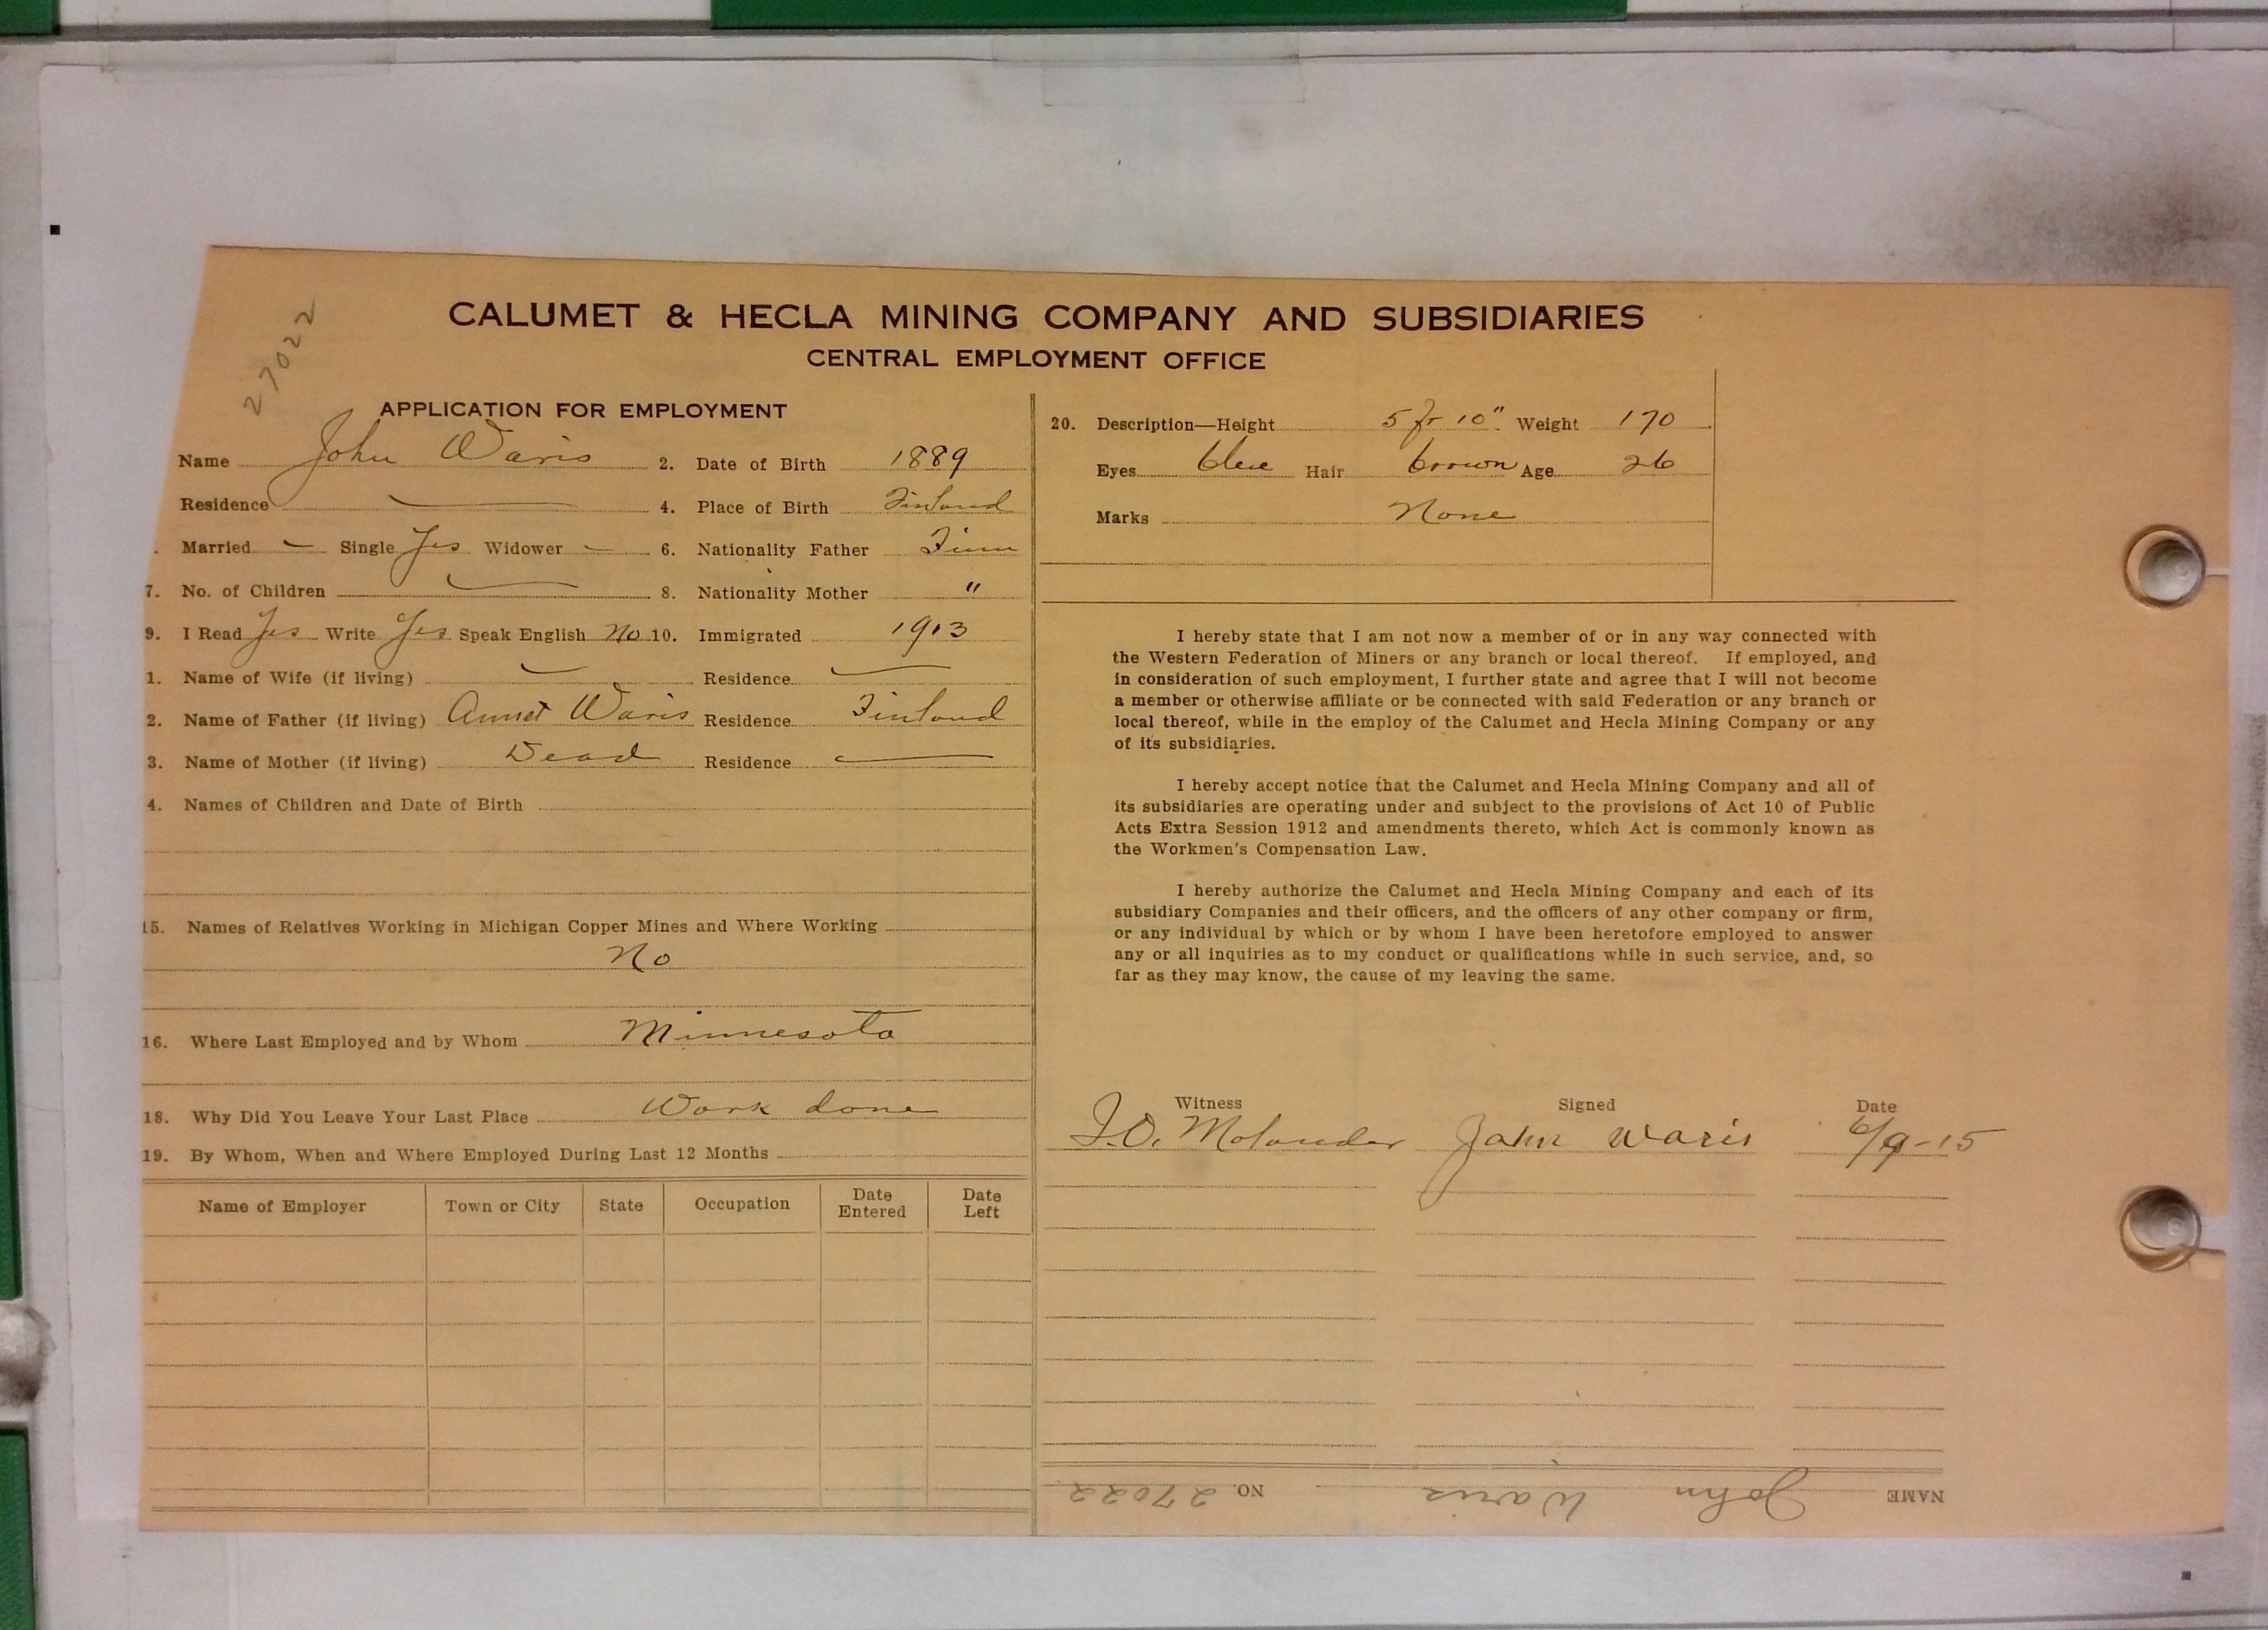 27022
CALUMET & HECLA MINING COMPANY AND SUBSIDIARIES
CENTRAL EMPLOYMENT OFFICE
APPLICATION FOR EMPLOYMENT
Name John Waris 2. Date of Birth 1889
Residence 4. Place of Birth Finland
Married Single Yes Widower 6. Nationality Father Finn
7. No. of Children 8. Nationality Mother "
9. I Read Yes Write Yes Speak English No 10. Immigrated 1913
1. Name of Wife (if living) Residence
2. Name of Father (if living) Waris Residence Finland
3. Name of Mother (if living) Dead Residence
4. Names of Children and Date of Birth
15. Names of Relatives Working in Michigan Copper Mines and Where Working
No
16. Where Last Employed and by Whom Minnesota
18. Why Did You Leave Your Last Place Work done
19. By Whom, When and Where Employed During Last 12 Months
Name of Employer Town or City State Occupation Date Entered Date Left
20. Description—Height 5 ft 10" Weight 170
Eyes blue Hair brown Age 26
Marks None
I hereby state that I am not now a member of or in any way connected with
the Western Federation of Miners or any branch or local thereof. If employed, and
in consideration of such employment, I further state and agree that I will not become
a member or otherwise affiliate or be connected with said Federation or any branch or
local thereof, while in the employ of the Calumet and Hecla Mining Company or any
of its subsidiaries.
I hereby accept notice that the Calumet and Hecla Mining Company and all of
its subsidiaries are operating under and subject to the provisions of Act 10 of Public
Acts Extra Session 1912 and amendments thereto, which Act is commonly known as
the Workmen's Compensation Law.
I hereby authorize the Calumet and Hecla Mining Company and each of its
subsidiary Companies and their officers, and the officers of any other company or firm,
or any individual by which or by whom I have been heretofore employed to answer
any or all inquiries as to my conduct or qualifications while in such service, and, so
far as they may know, the cause of my leaving the same.
Witness Signed Date
J.O. Molander John Waris 6/9-15
NAME John Waris NO. 27022